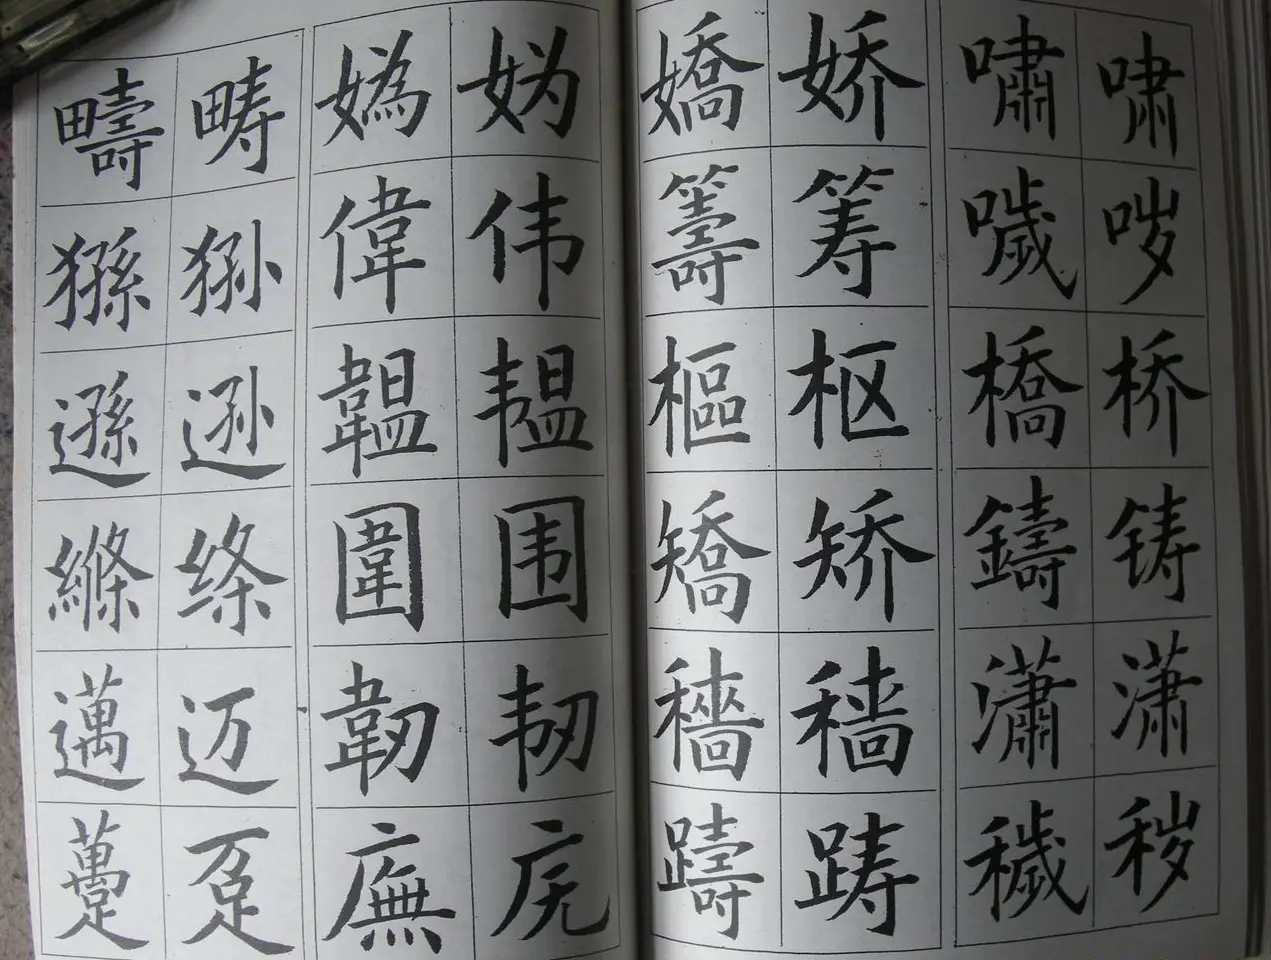 疇 畴 媯 妫
猻 狲 偉 伟
遜 逊 韞 韫
縧 绦 圍 围
邁 迈 韌 韧
躉 趸 廡 庑
嬌 娇 嘯 啸
籌 筹 噦 哕
樞 枢 橋 桥
矯 矫 鑄 铸
穡 穑 瀟 潇
躊 踌 穢 秽